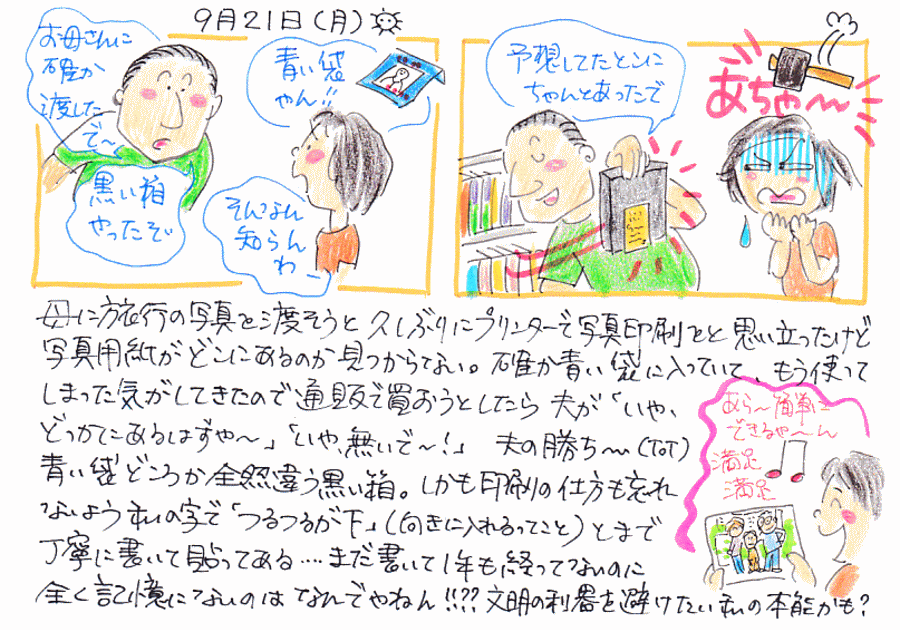 9月21日(月)
お母さんに
確か
渡した
で〜
黒い箱
やったぞ
青い袋
やん!!
そんなん
知らん
わー
予想してたとこに
ちゃんとあったで
あちゃ〜
母に旅行の写真を渡そうと久しぶりにプリンターで写真印刷をと思い立ったけど
写真用紙がどこにあるのか見つからない。確か青い袋に入っていて、もう使って
しまった気がしてきたので通販で買おうとしたら夫が「いや、
どっかにあるはずや〜」「いや、無いで〜!」 夫の勝ち〜(ToT)
青い袋どころか全然違う黒い箱。しかも印刷の仕方も忘れ
ないよう私の字で「つるつるが下」(向きに入れるってこと)とまで
丁寧に書いて貼ってある…まだ書いて1年も経ってないのに
全く記憶にないのはなんでやねん!!??文明の利器を避けたい私の本能かも?
あら〜簡単に
できるや〜ん
満足
満足